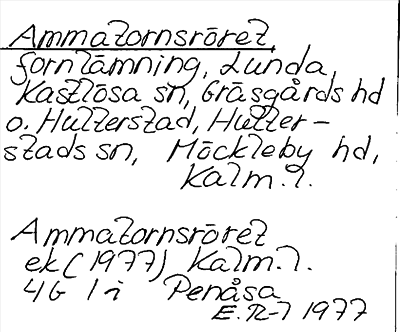 Ammatornsröret,
fornlämning, Lunda,
Kastlösa sn, Gräsgårds hd
o. Hulterstad, Hulter-
stads sn, Möckleby hd,
Kalm. l.
Ammatornsröret
ek (1977) Kalm. l.
4G 1 i Penåsa
E. R-J 1977